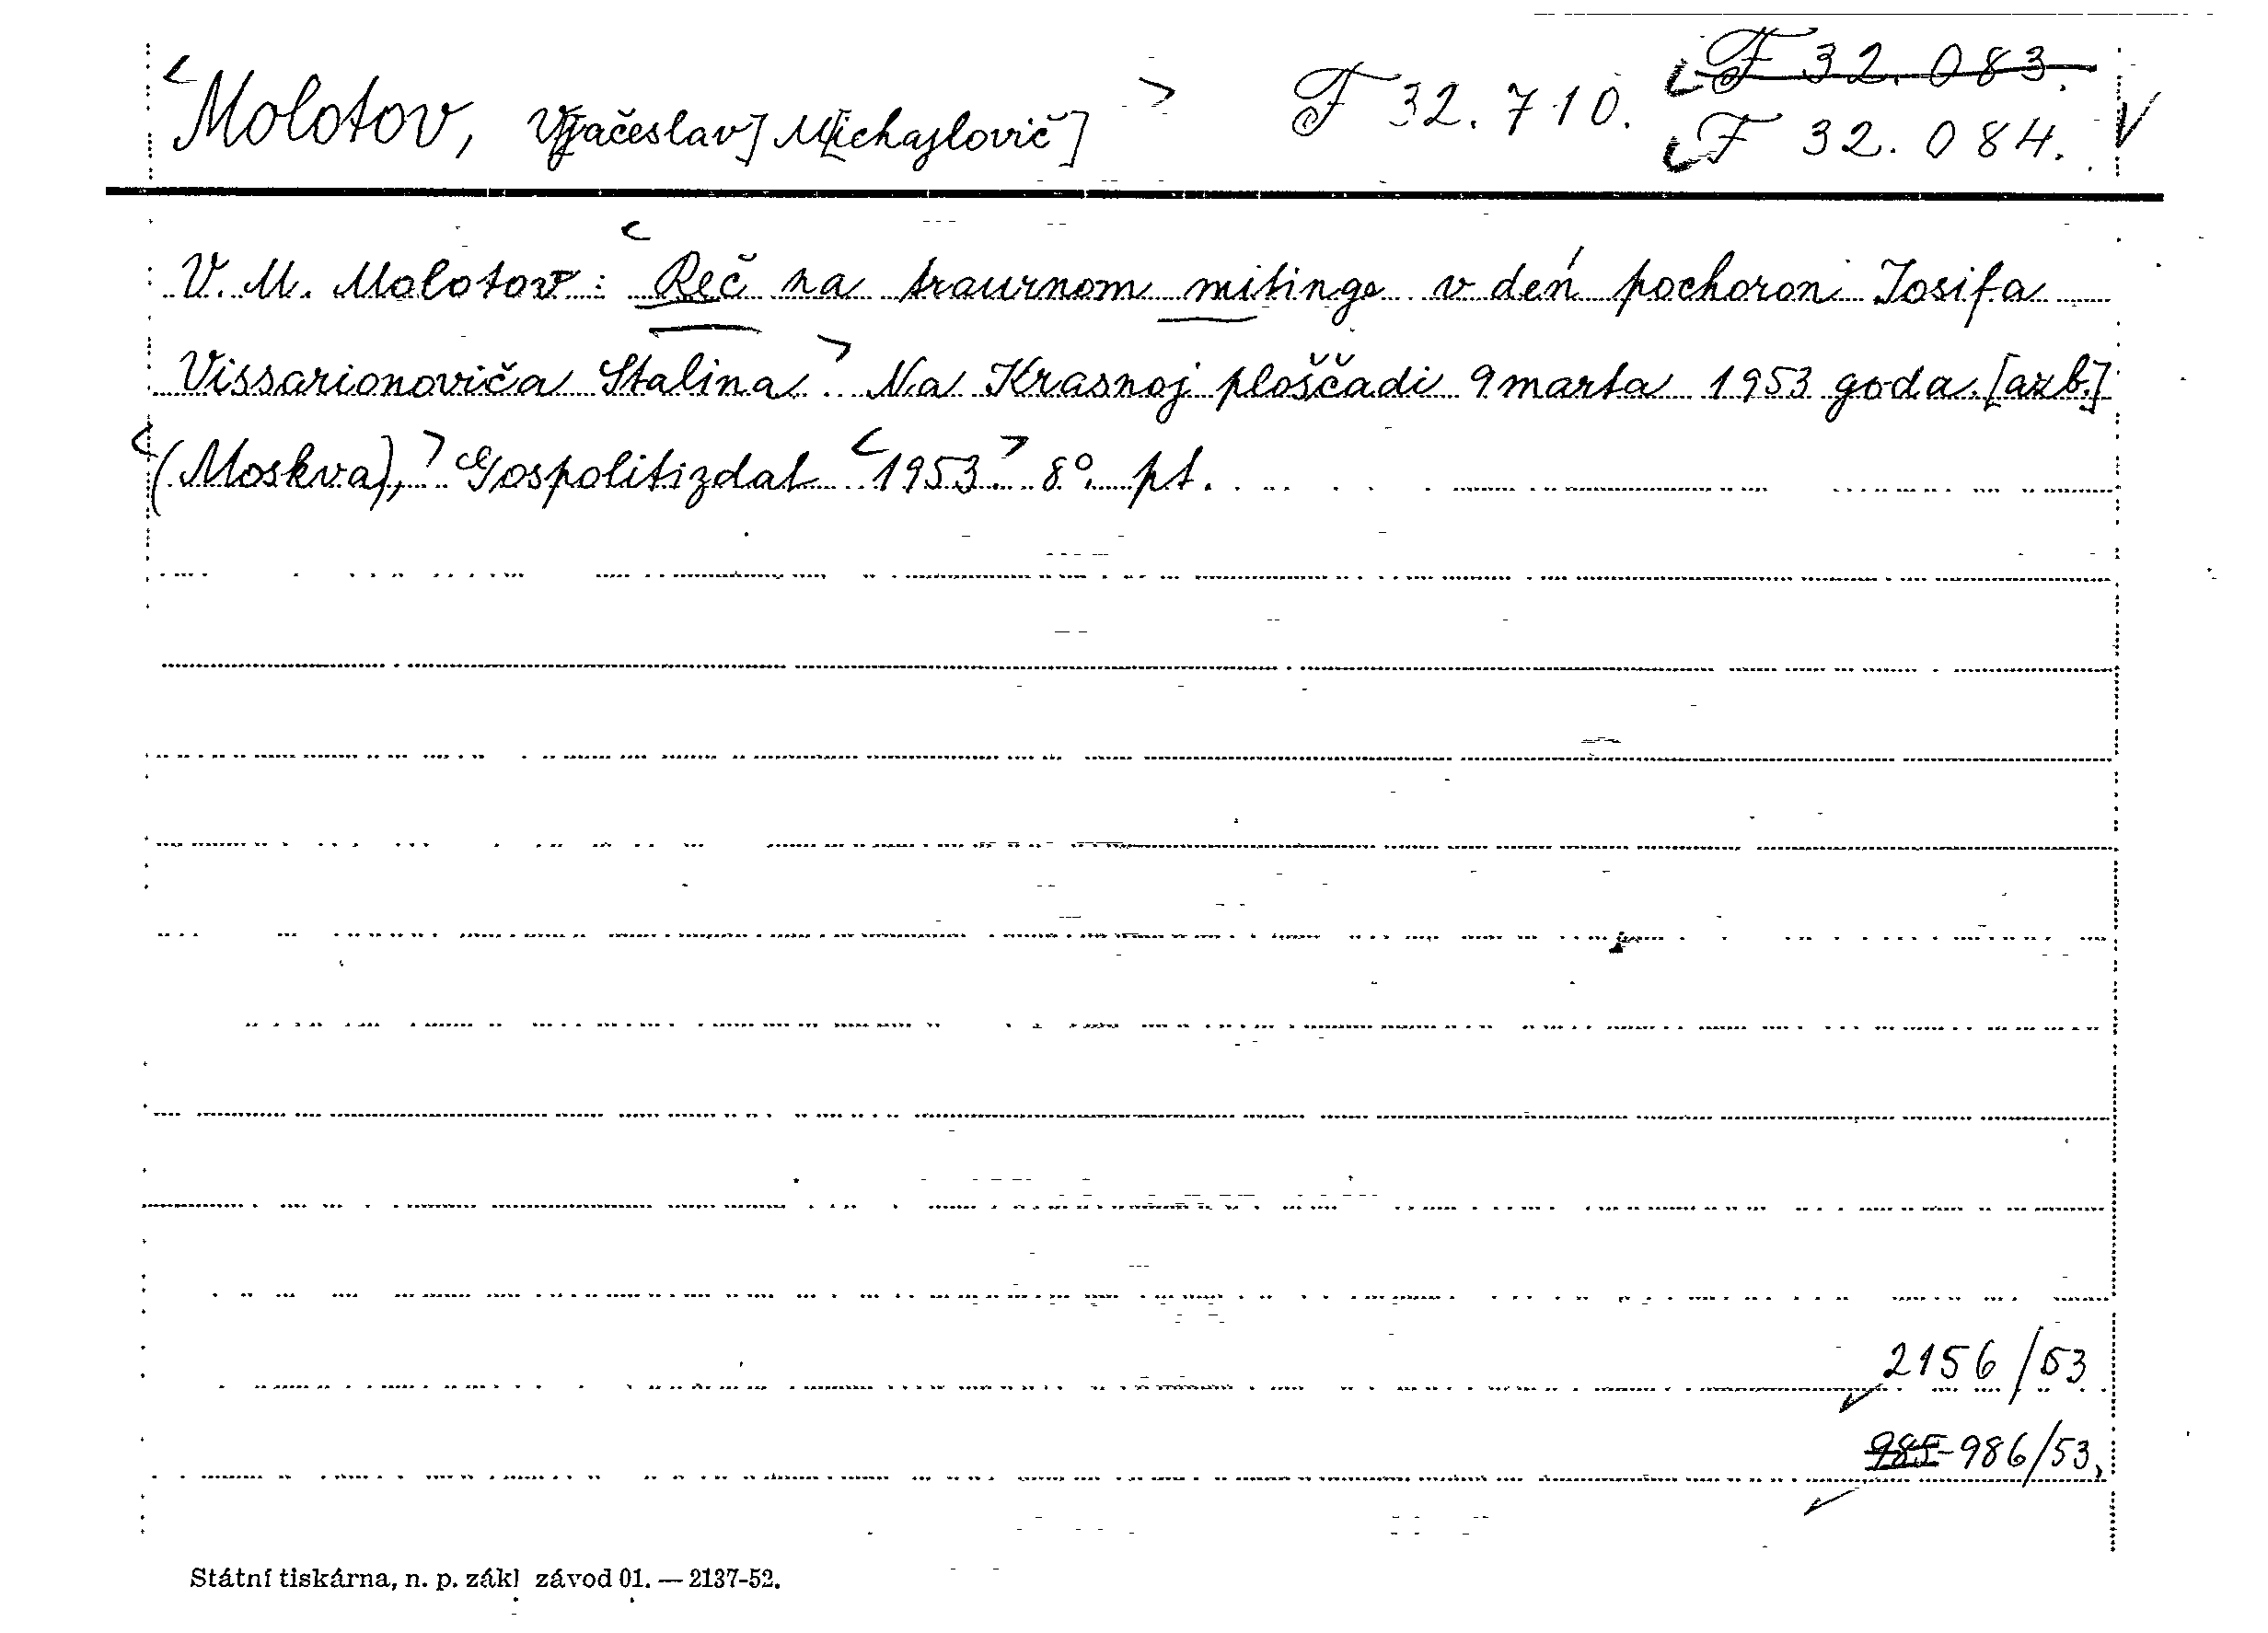 Molotov, V[jačeslav] M[ichajlovič] F 32.710. F 32.083.
F 32.084.
V. M. Molotov: Reč na traurnom mitinge v deń pochoron Iosifa
Vissarionoviča Stalina. Na Krasnoj ploščadi 9 marta 1953 goda. [azb.]
(Moskva), Gospolitizdat 1953. 8°. pt.
2156/53
985-986/53,
Státní tiskárna, n. p. zákl závod 01. — 2137-52.